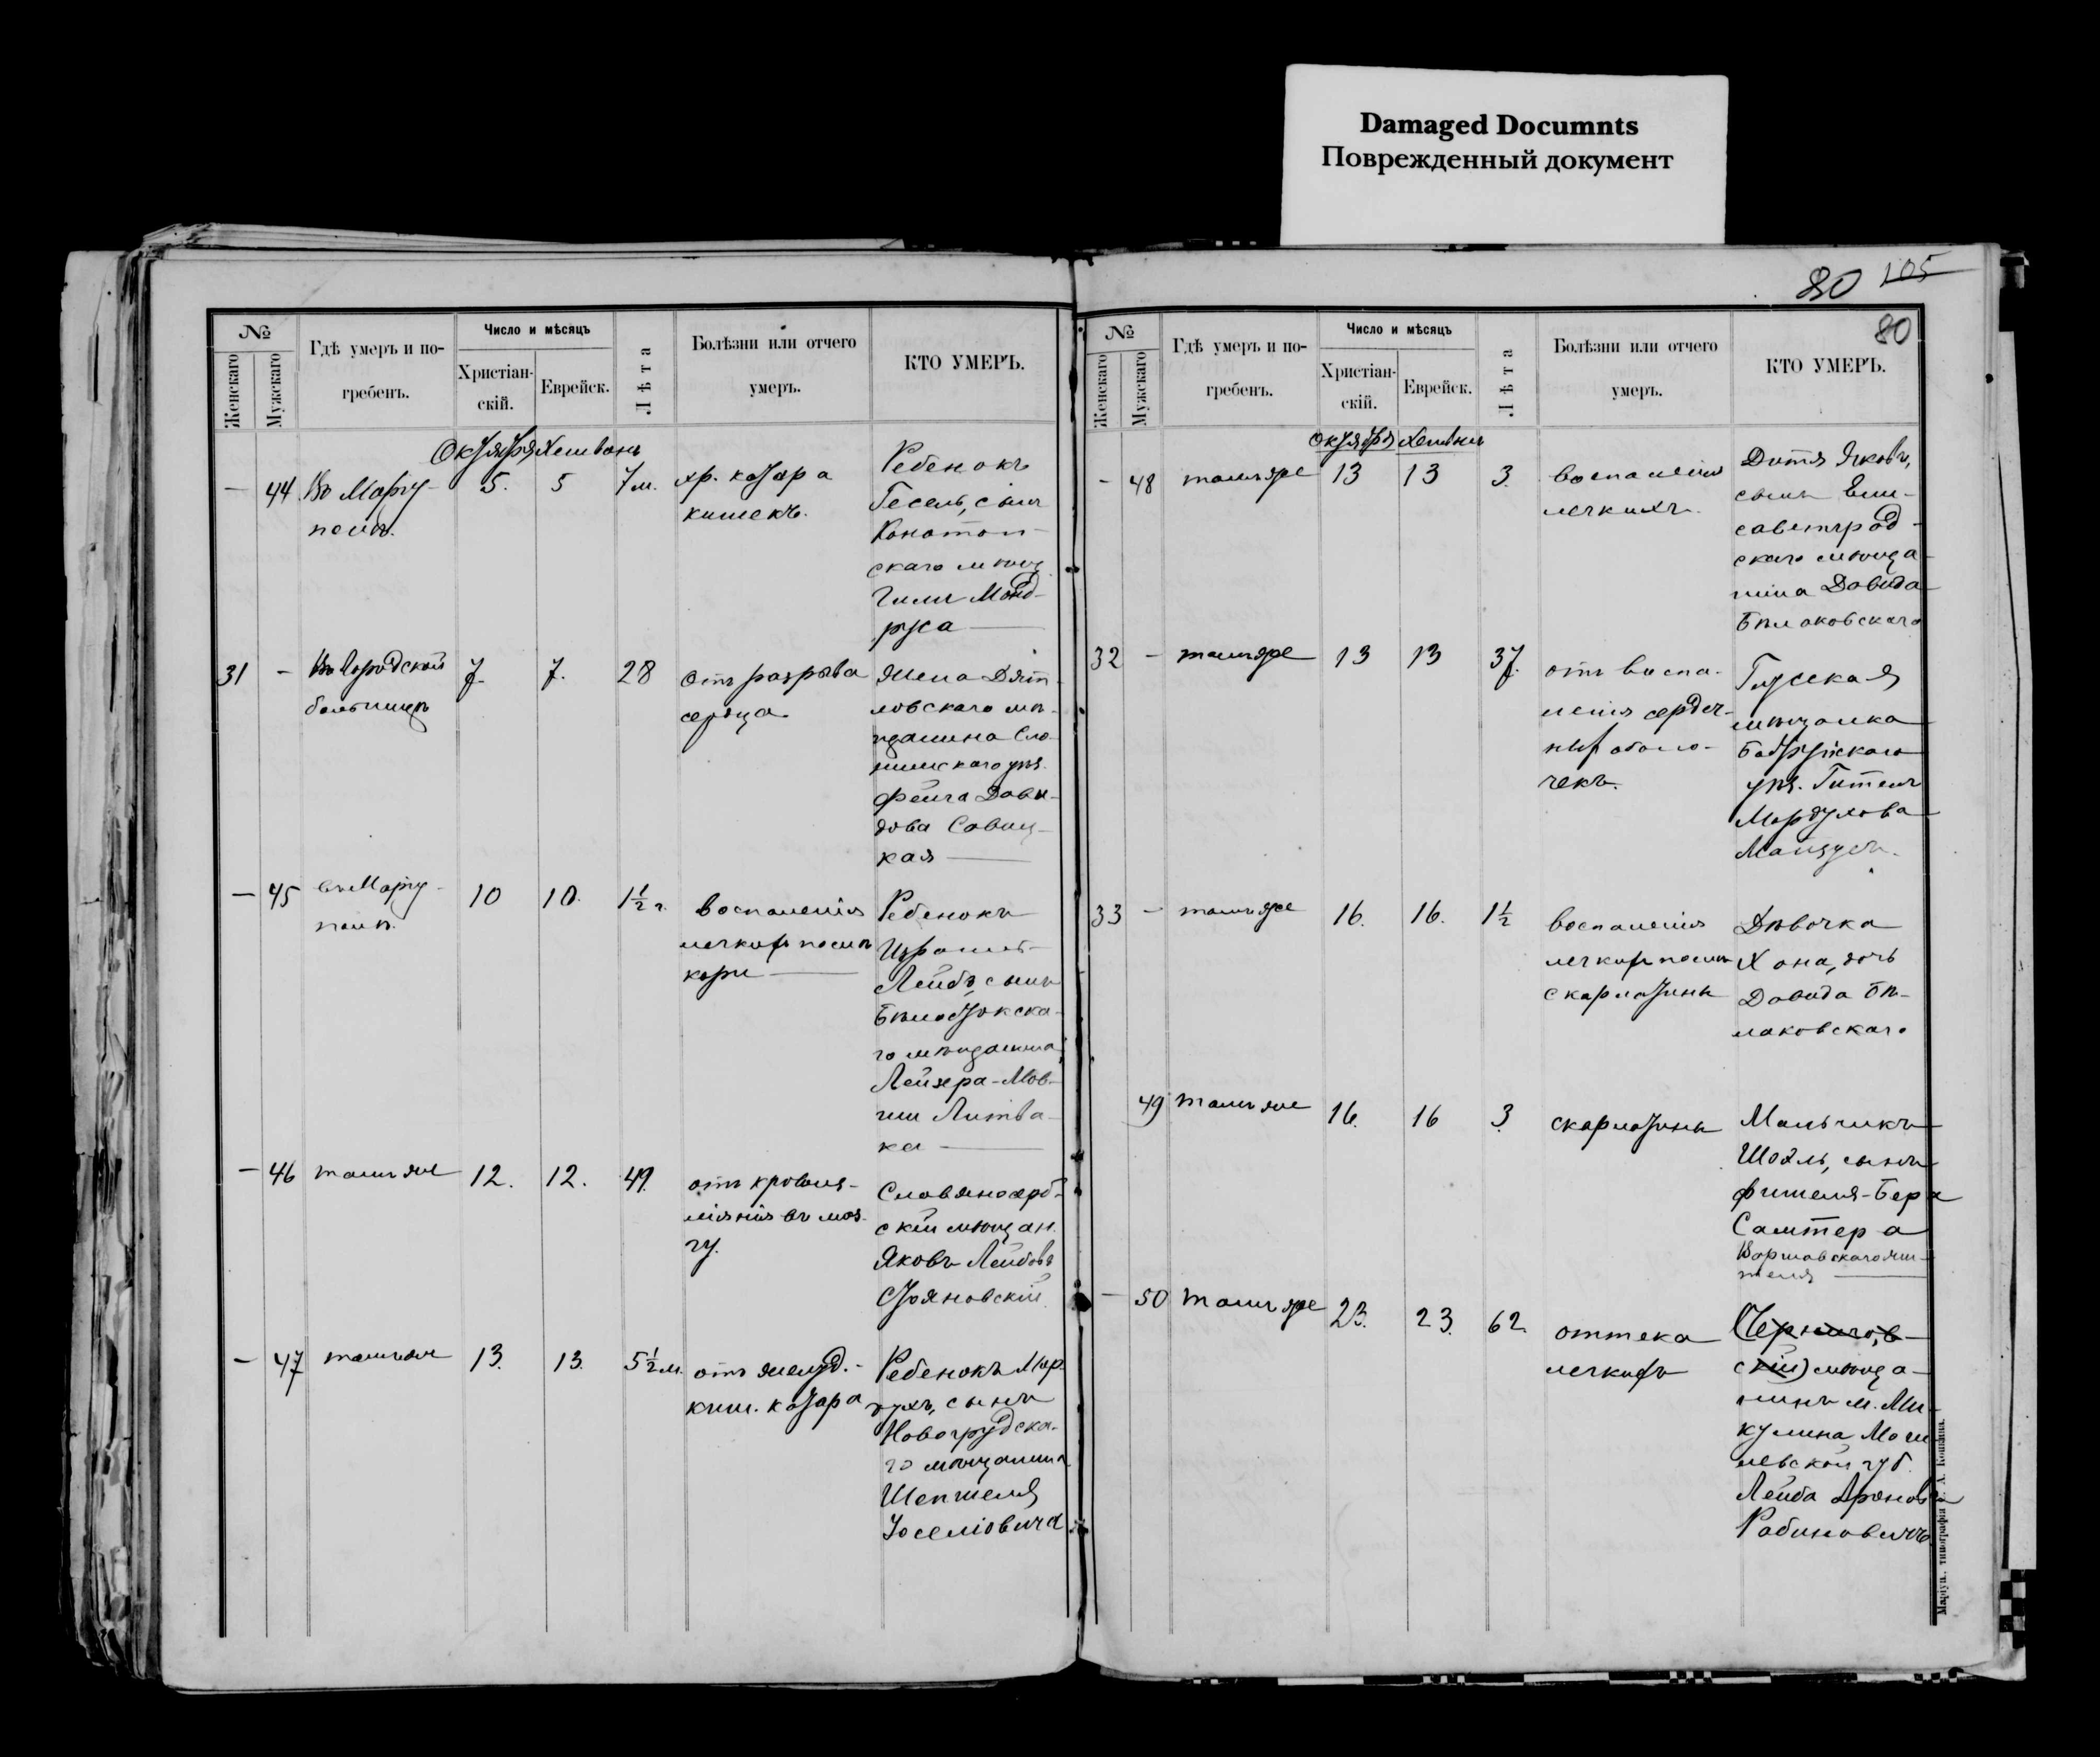 Damaged Documnts
Поврежденный документ
80 105
80
№
Женскаго
Мужскаго
Гдѣ умеръ и по-
гребенъ.
Число и мѣсяцъ
Христіан-
скій.
Еврейск.
Лѣта
Болѣзни или отчего
умеръ.
КТО УМЕРЪ.
Октября Хешвань
— 44 Въ Мариу-
полѣ.
5. 5 7 м.
хр. катара
кишекъ.
Ребенокъ
Гесель, сынъ
Конотоп-
скаго мѣщ.
руса —
31 — Въ Городской
больницѣ
7. 7. 28
Отъ разрыва
сердца.
Жена Дят-
ловскаго мѣ-
щанина Сло-
нимскаго уѣз.
Фейга Давы-
дова Савиц-
кая —
— 45 въ Мариу-
полѣ.
10 10. 1½ г.
воспаленія
легкихъ послѣ
кори —
Ребенокъ
Израиль-
Лейбъ, сынъ
Бѣлостокска-
го мѣщанина
Лейзера-Мов-
ши Литва-
ка —
— 46 тамъ же 12. 12. 49.
отъ кровоиз-
ліянія въ моз-
гу.
Славяносерб-
скій мѣщан.
Яковъ Лейбовъ
Стояновскій
— 47 тамъ же 13. 13. 5½ м.
отъ желуд.-
киш. катара
Ребенокъ Мор-
духъ, сынъ
Новогрудска-
го мѣщанина
Шепшеля
Іоселіовича
№
Женскаго
Мужскаго
Гдѣ умеръ и по-
гребенъ.
Число и мѣсяцъ
Христіан-
скій.
Еврейск.
Лѣта
Болѣзни или отчего
умеръ.
КТО УМЕРЪ.
Октября Хешвань
- 48 тамъ же 13 13 3.
воспаленія
легкихъ.
Дитя Яковъ,
сынъ Ели-
саветград-
скаго мѣща-
нина Давида
Бѣлаковскаго
32 - тамъ же 13 13 37.
отъ воспа-
ленія сердеч-
ныхъ оболо-
чекъ.
Глусская
мѣщанка
Бобруйскаго
уѣз. Гитель
Мордухова
33 - тамъ же 16. 16. 1½
воспаленія
легкихъ послѣ
скарлатины
Дѣвочка
Хана, дочь
Давида Бѣ-
лаковскаго
49 тамъ же 16. 16 3.
скарлатины
Мальчикъ
Шоэль, сынъ
Фишеля-Бера
Самтера
Варшавскаго жи-
теля —
— 50 тамъ же 23. 23. 62
оттека
легкихъ
(Чернигов-
скій) мѣща-
нинъ м. Ми-
кулина Моги-
левской губ.
Лейба Ароновъ
Рабиновичъ
Маріуп., типографія